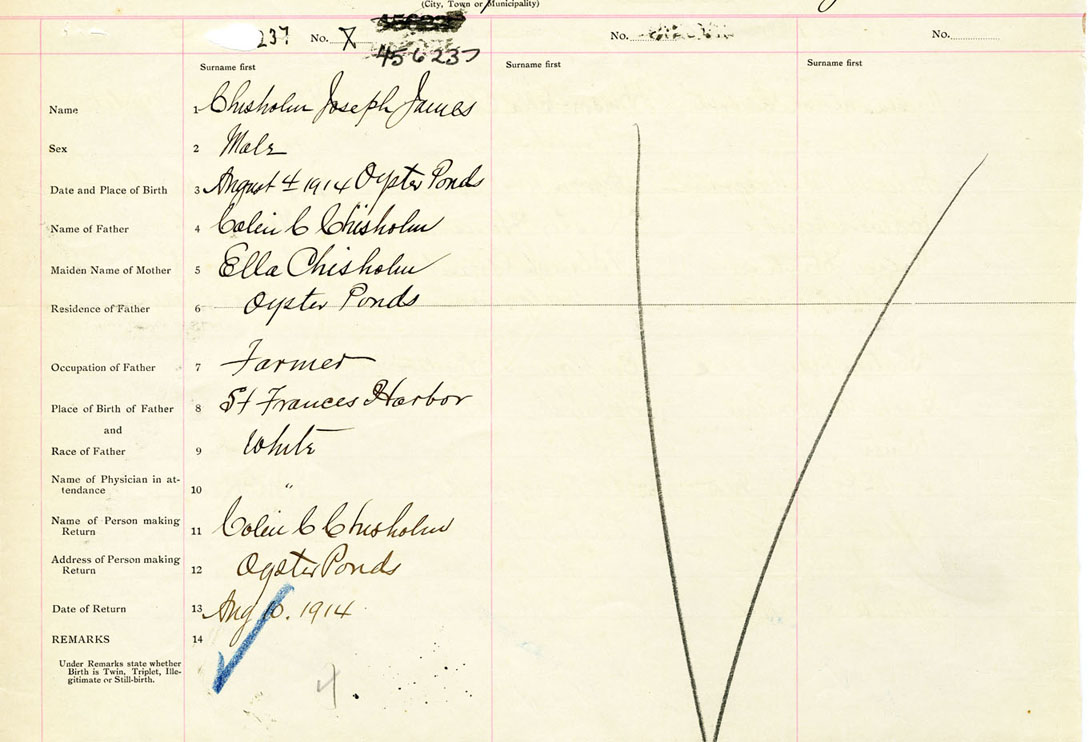 (City, Town or Municipality)
237 No. X No. No.
456237
Surname first Surname first Surname first
Name 1 Chisholm Joseph James
Sex 2 Male
Date and Place of Birth 3 August 4 1914 Oyster Ponds
Name of Father 4 Colin C Chisholm
Maiden Name of Mother 5 Ella Chisholm
Residence of Father 6 Oyster Ponds
Occupation of Father 7 Farmer
Place of Birth of Father 8 St Frances Harbor
and
Race of Father 9 White
Name of Physician in at-
tendance 10 "
Name of Person making
Return 11 Colin C Chisholm
Address of Person making
Return 12 Oyster Ponds
Date of Return 13 Aug . 1914
REMARKS 14
Under Remarks state whether
Birth is Twin, Triplet, Ille-
gitimate or Still-birth.
4.